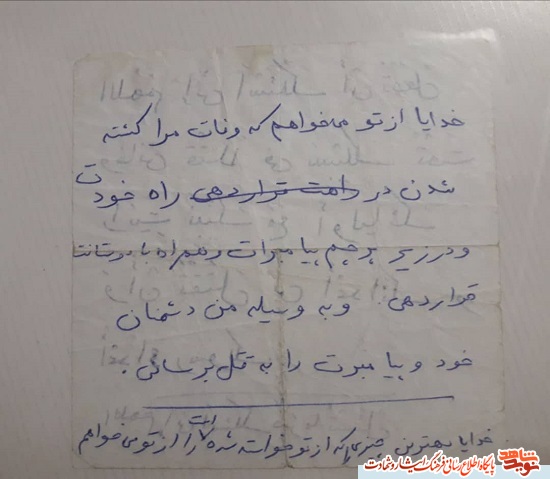 خدایا از تو میخواهم که وفات مرا کشته
شدن در راهت قرار دهی راه خودت
و در زیر پرچم پیامبرات و همراه با دوستانت
قرار دهی و به وسیله من دشمنان
خود و پیامبرت را به قتل برسانی.
خدایا بهترین چیزی که از تو خواسته شده است را از تو می خواهم
نوید شاهد
پایگاه اطلاع رسانی فرهنگ ایثار و شهادت